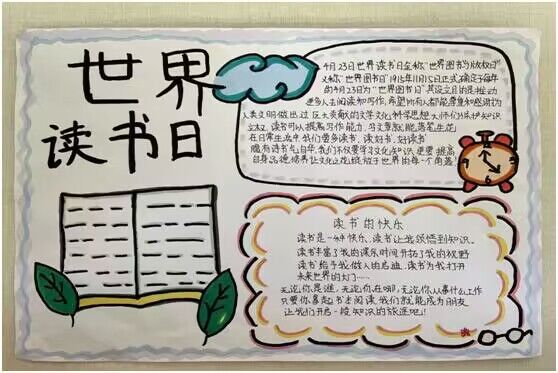 世界
读书日
4月23日世界读书日全称"世界图书与版权日"
又称"世界图书日"1915年11月15日正式确定每年
的4月23日为"世界图书日"其设立目的是推动
更多人去阅读和写作,希望所有人都能尊重和感谢为
人类文明做出过巨大贡献的文学文化科学思想大师们保护知识
读书可以提高写作能力,与文章就能落笔生花
在日常生活中,我们要多读书、读好书、好读书
腹有诗书气自华,我们不仅要学习文化知识,更要提高
自身品德修养让文化之花绽放于世界的每一个角落!
读书的快乐
读书是一种快乐,读书让我领悟到知识。
读书丰富了我的课乐时间开拓了我的视野
读书给予我做人的启迪。读书为我打开
未来世界的大门……
无论你是谁,无论你在哪,无论你从事什么工作
只要你拿起书去阅读我们就能成为朋友
让我们开启一段知识的旅途吧!